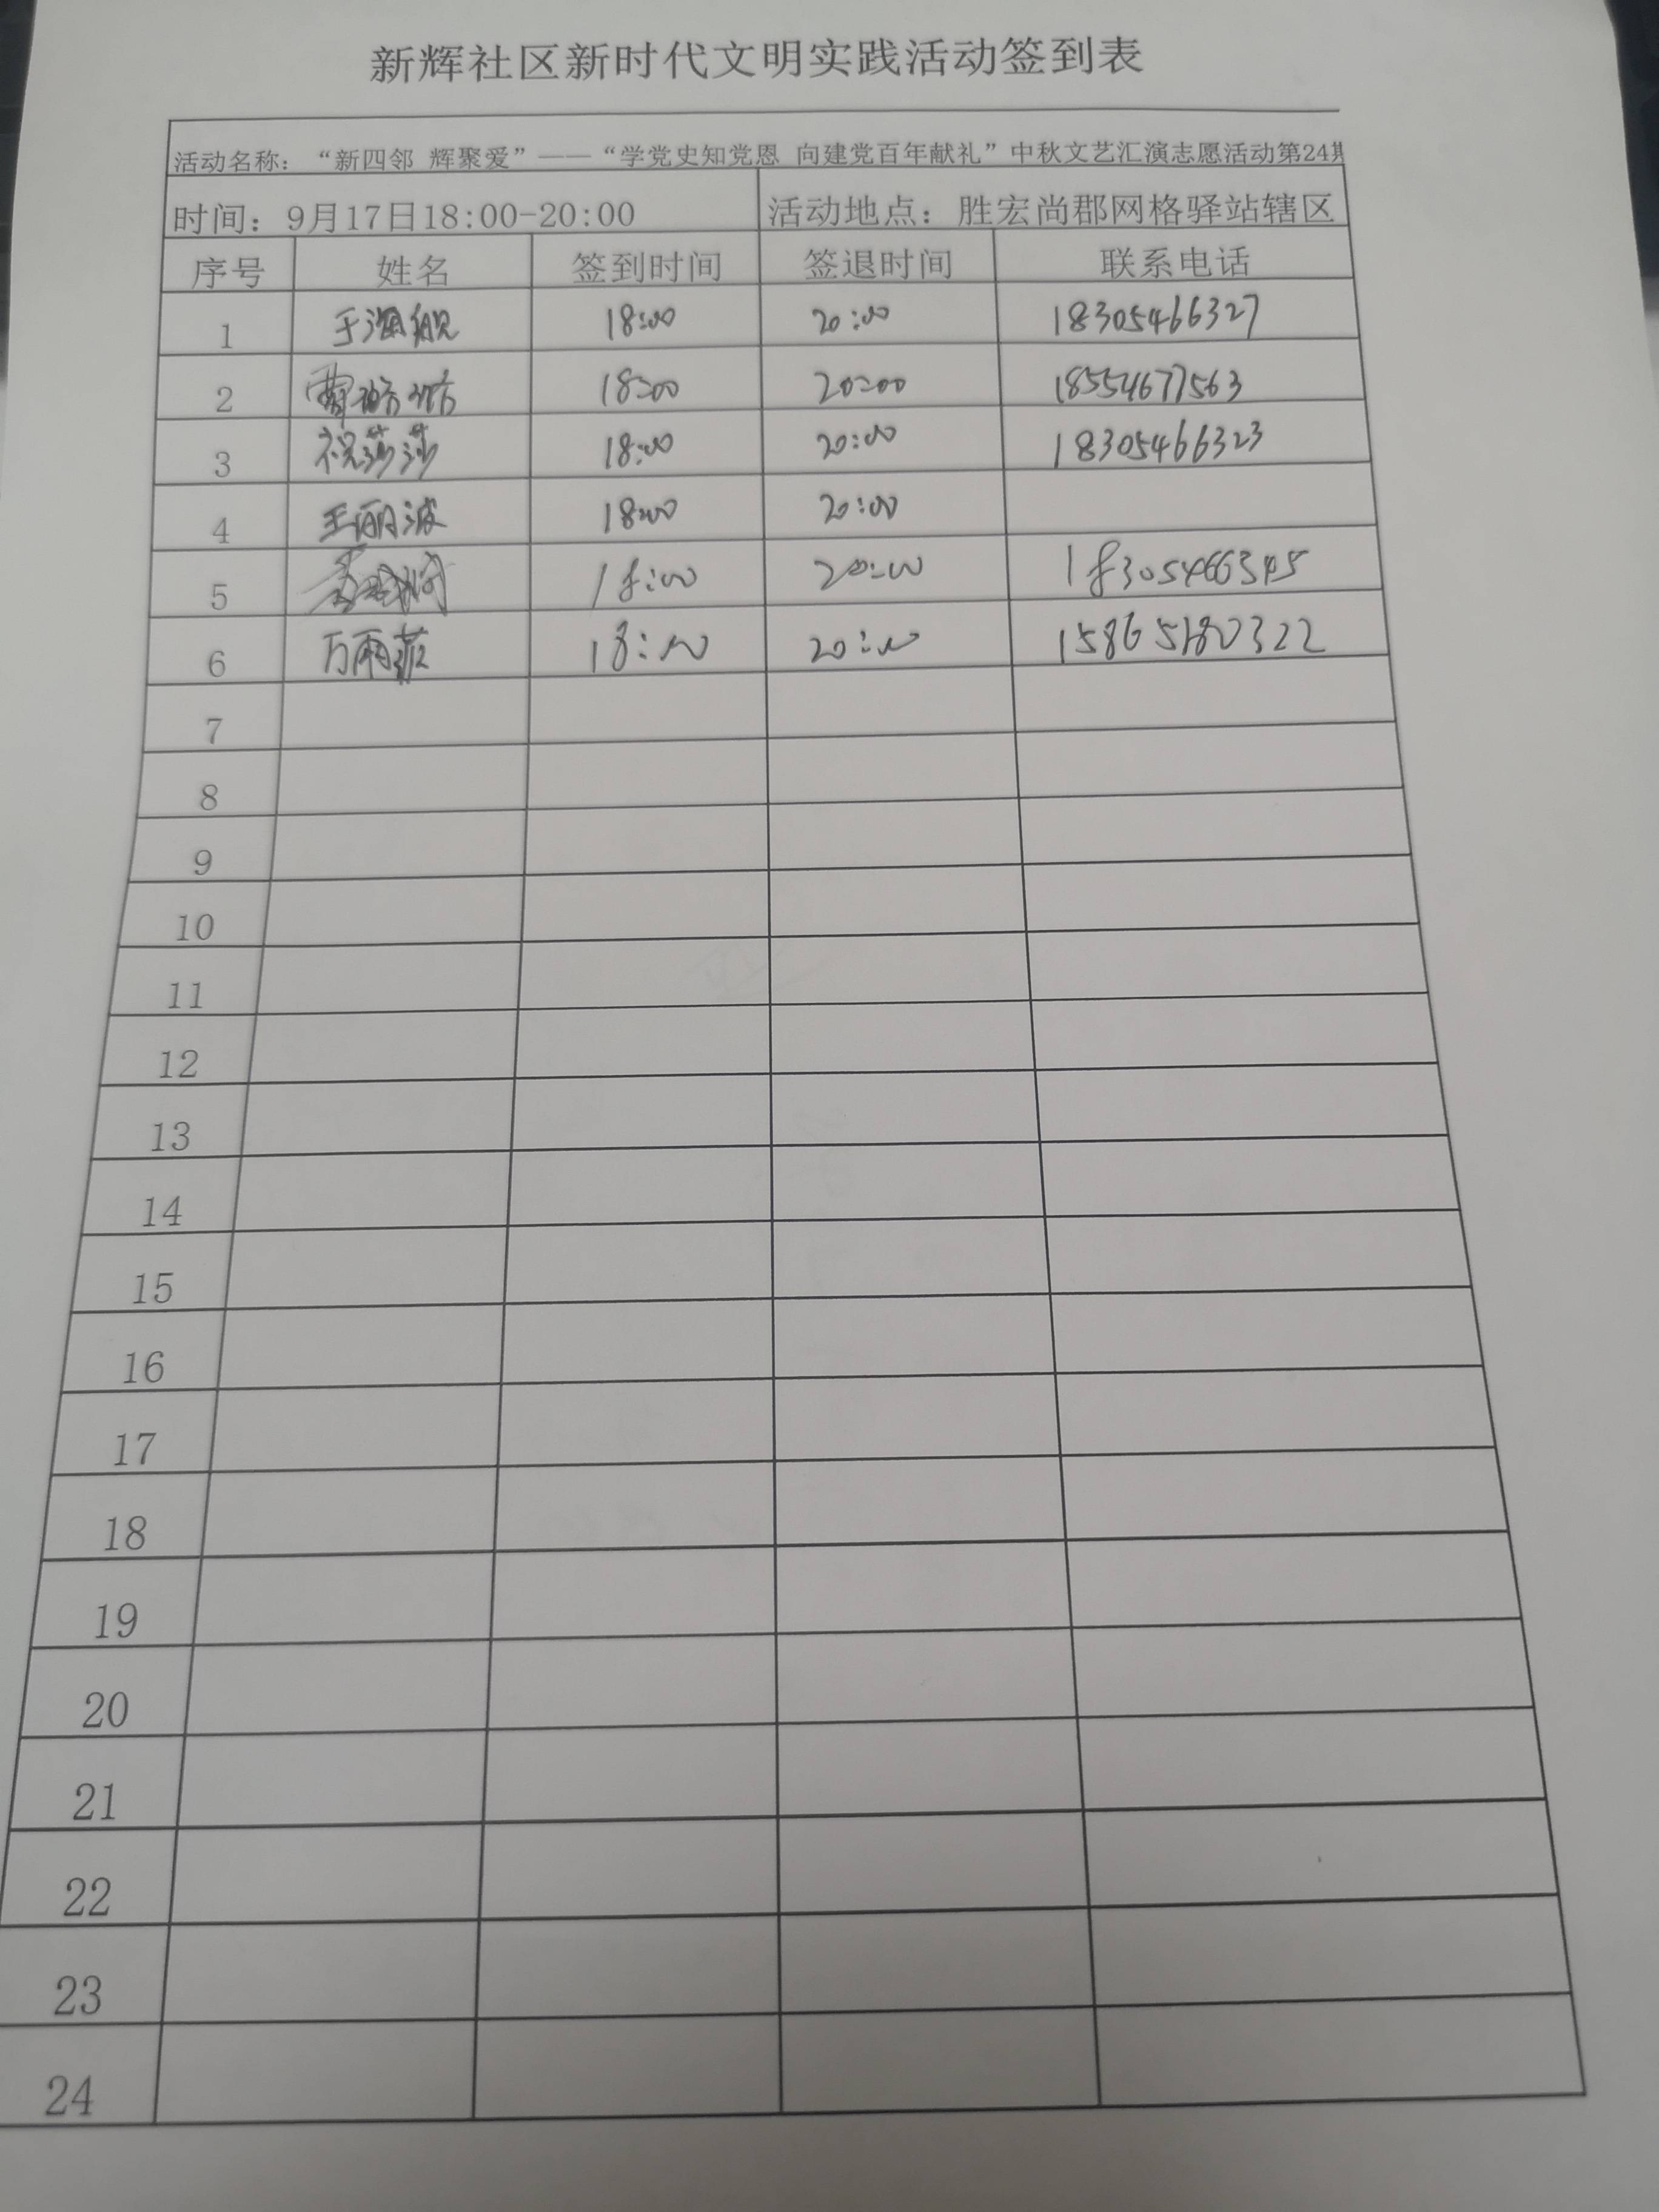 新辉社区新时代文明实践活动签到表
活动名称：“新四邻 辉聚爱”——“学党史知党恩 向建党百年献礼”中秋文艺汇演志愿活动第24期
时间：9月17日18:00-20:00 活动地点：胜宏尚郡网格驿站辖区
序号 姓名 签到时间 签退时间 联系电话
1 于海舰 18:00 20:00 18305466327
2 18:00 20:00 18554677563
3 祝莎莎 18:00 20:00 18305466323
4 王丽波 18:00 20:00
5 18:00 20:00 18305466345
6 万雨菲 18:00 20:00 15865180322
7
8
9
10
11
12
13
14
15
16
17
18
19
20
21
22
23
24